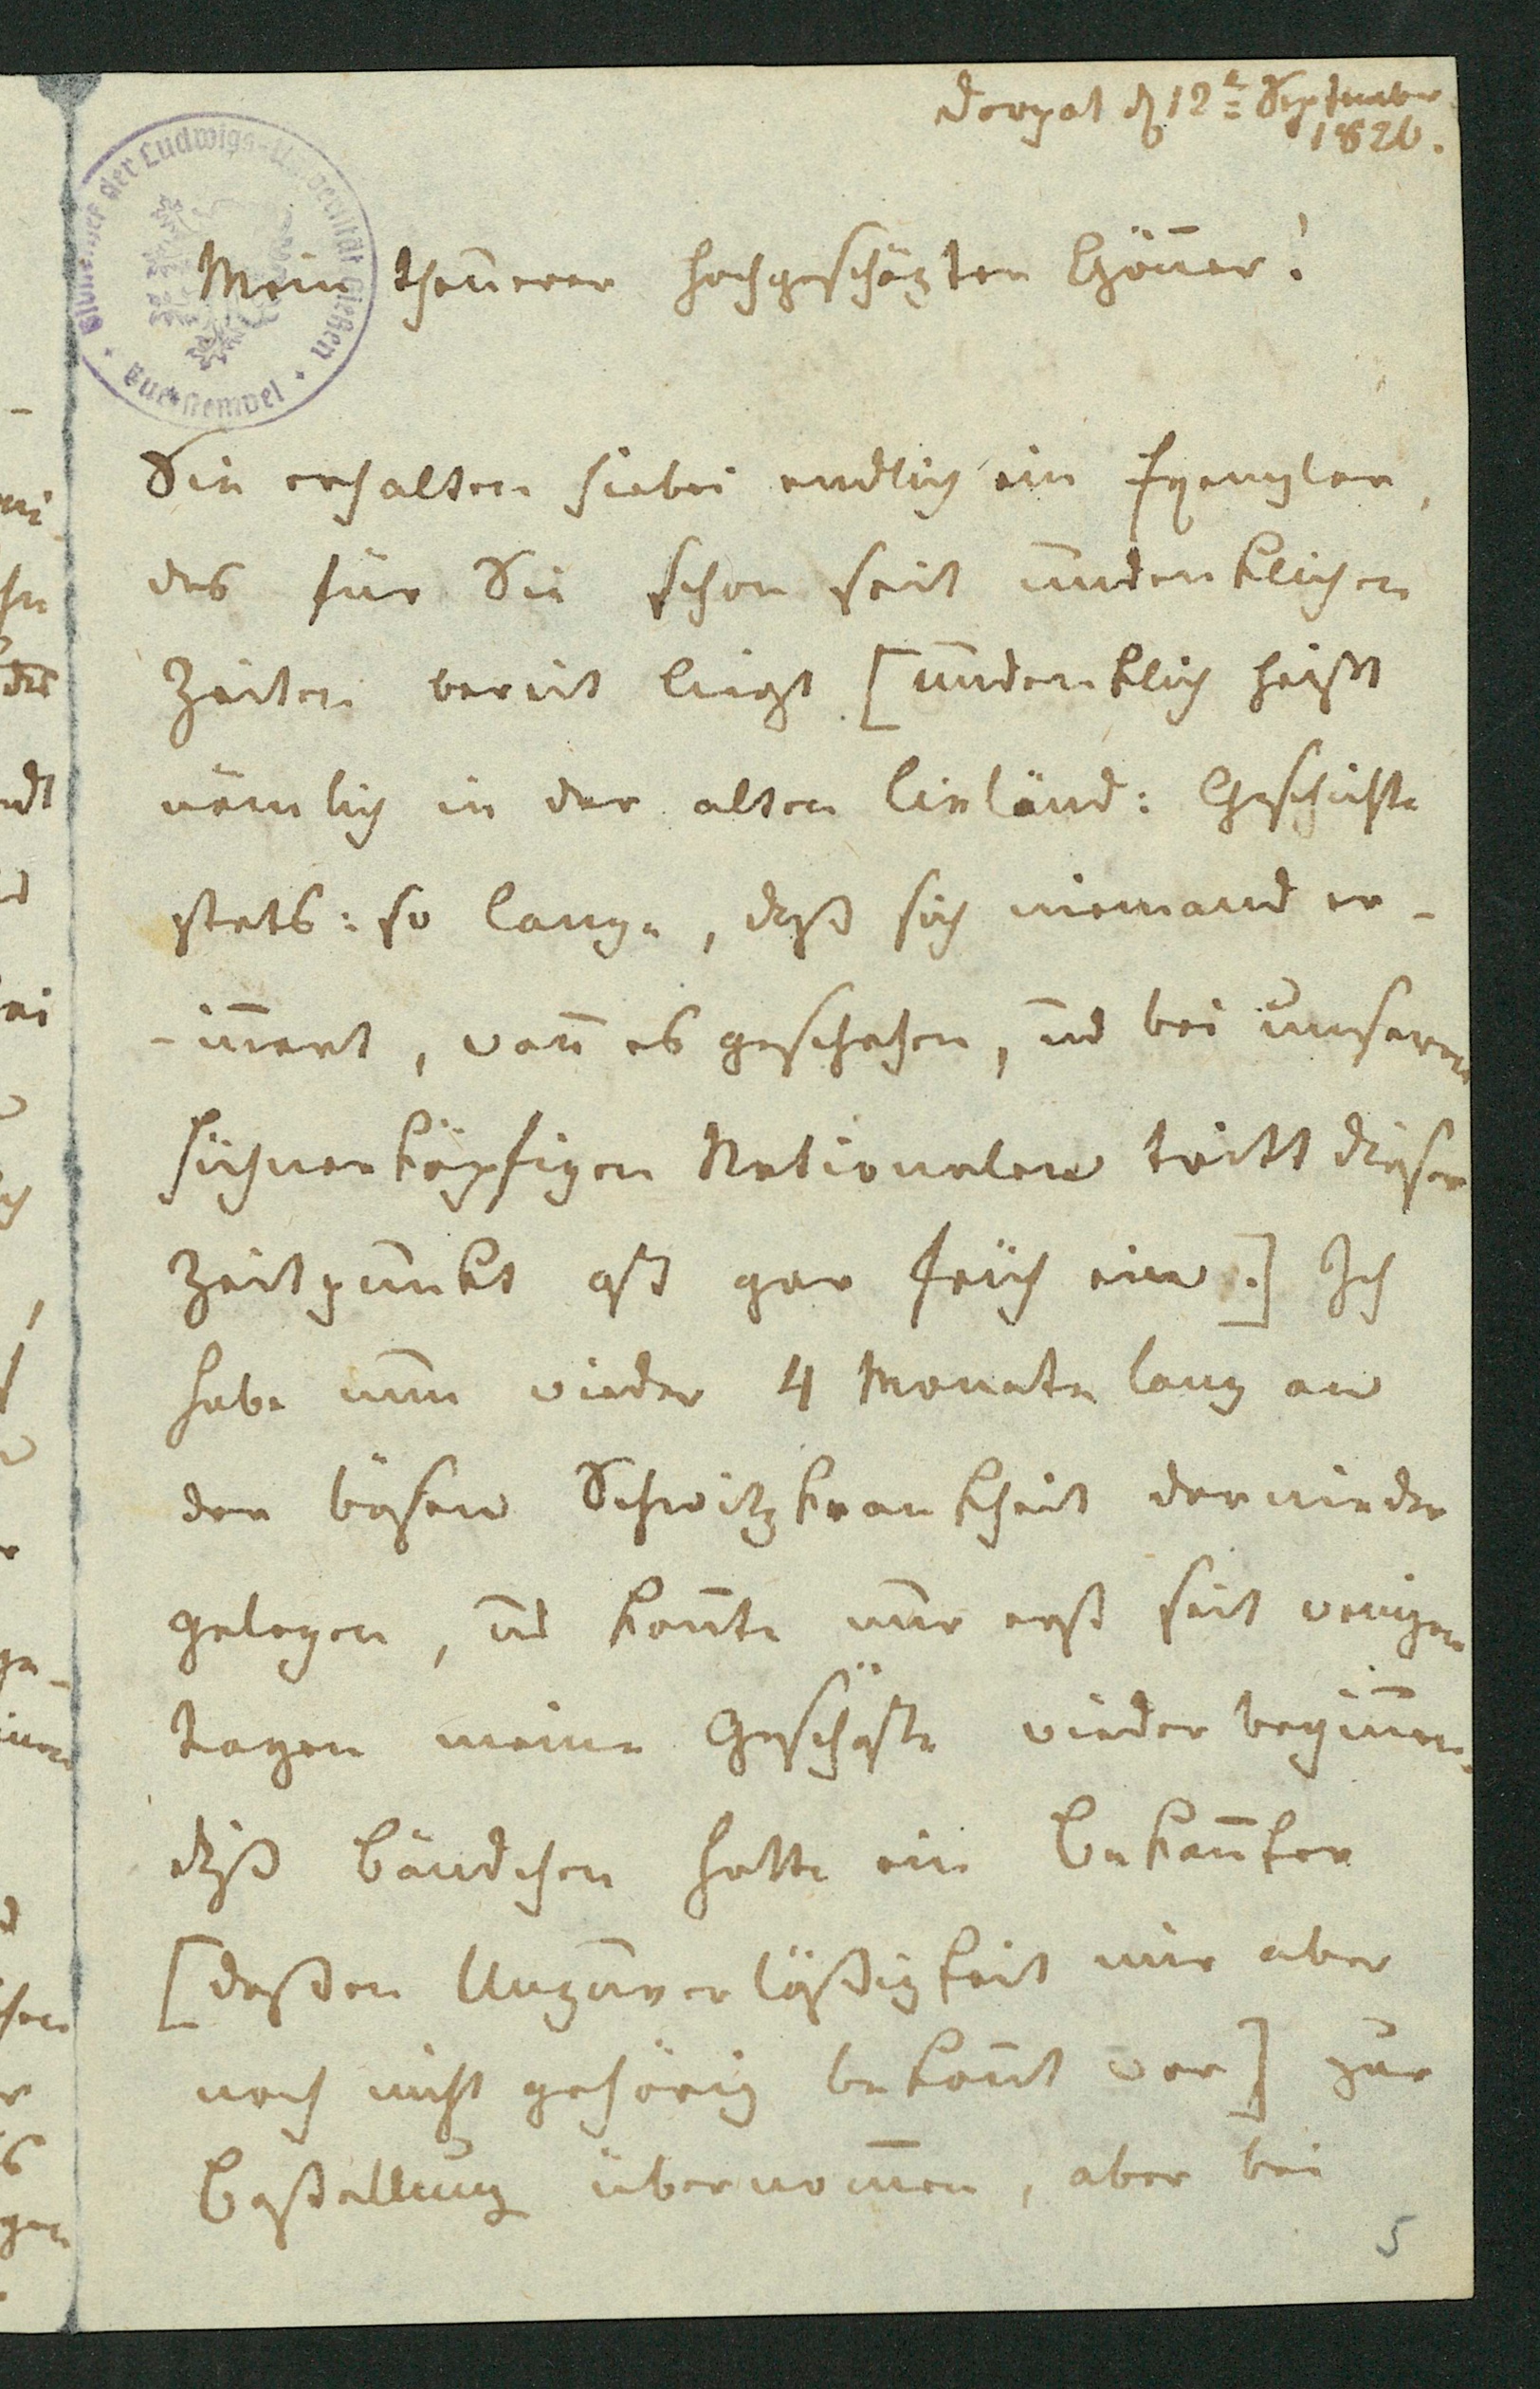 Dorpat d 12t September
1826.
Mein theurer hochgeschäzter Gönner!
Sie erhalten hiebei endlich ein Exemplar,
das für Sie schon seit undenklichen
Zeiten bereit liegt [undenklich heißt
nämlich in der alten Livländ: Geschichte
stets: so lange, daß sich niemand er-
-iñert, wañ es geschehen, und bei unseren
hühnerköpfigen Nationalen tritt dieser
Zeitpunkt oft gar früh ein.] Ich
habe nun wieder 4 Monate lang an
der bösen Schwitzkrankheit darnieder
gelegen, und koñte nur erst seit wenigen
Tagen meine Geschäfte wieder begiñen.
Diß Bändchen hatte ein Bekañter
[deßen Unzuverläßigkeit mir aber
noch nicht gehörig bekañt war] zur
Bestellung übernom̄en, aber bei
5
der Ludwigs-Universität Gießen